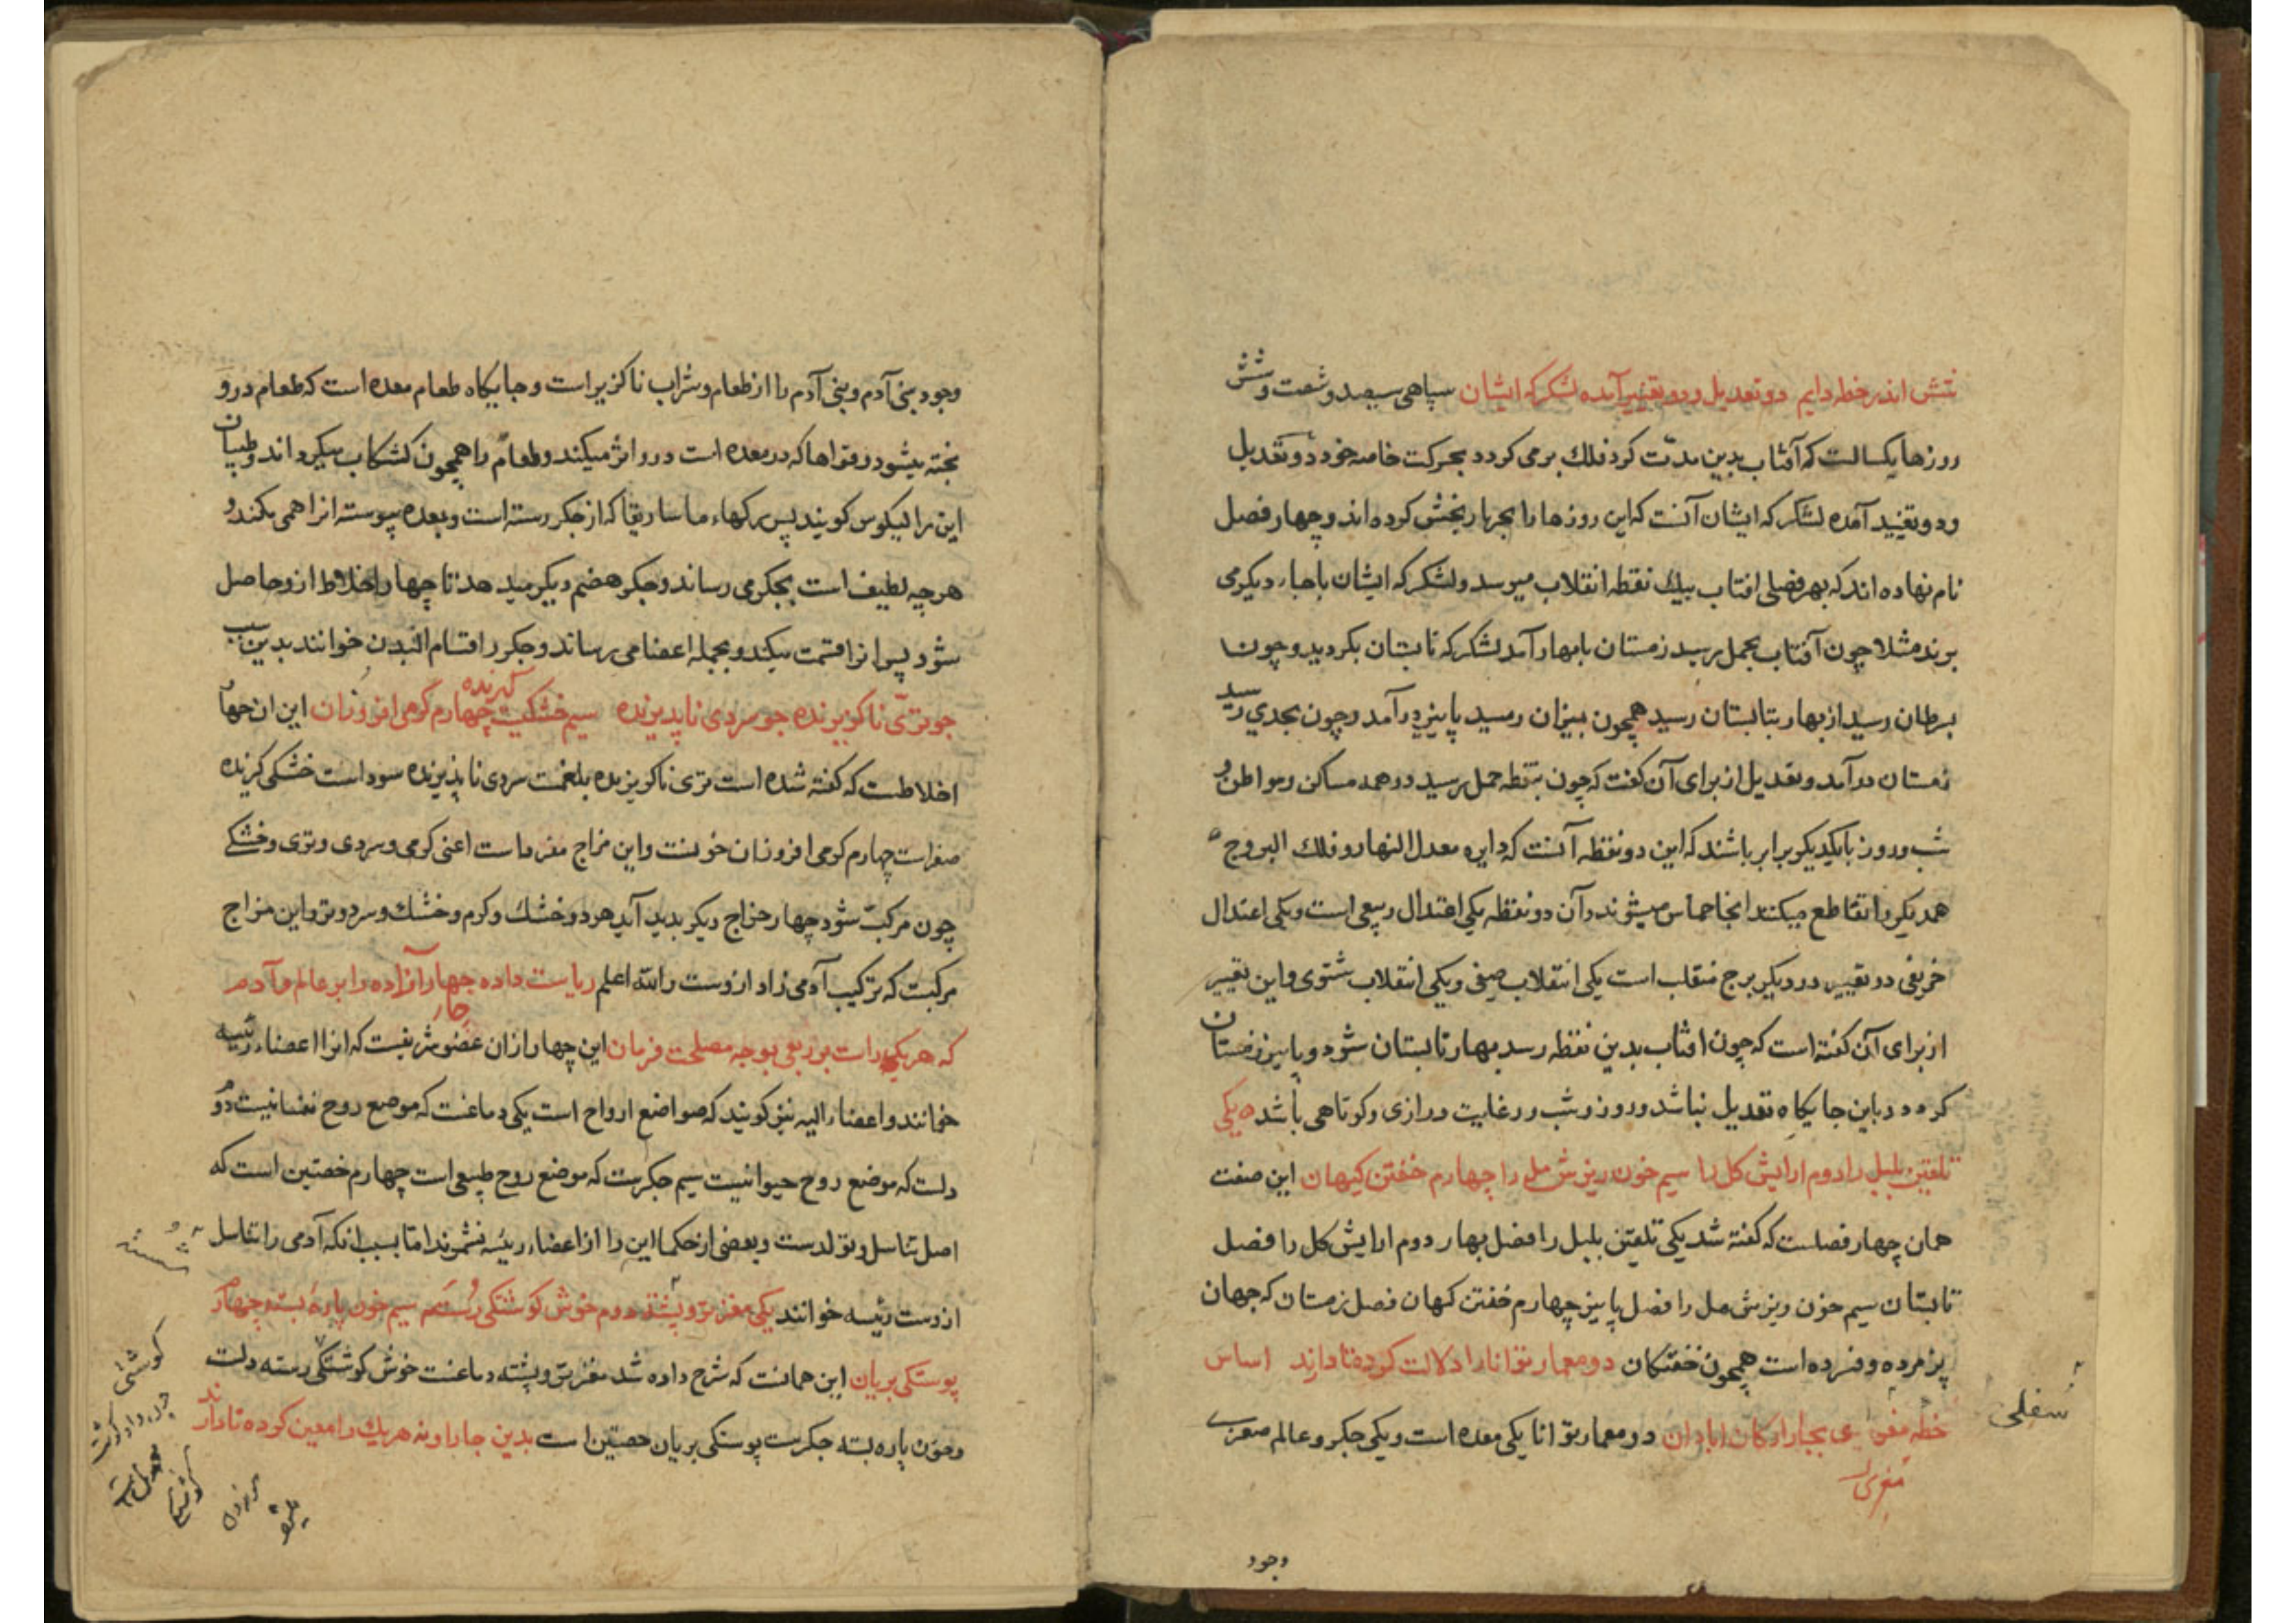 نتش اندر خطه دایم دو تعدیل و دو تغییر آمده لشکر که ایشان سپاهی سیصد و شصت و شش
روزها یکسالست که آفتاب بدین مدت کرد فلک برمی کردد بحرکت خاصه خود دو تعدیل
و دو تغیید آمده لشکر که ایشان آنست که این روزها را بچهار بخش کرده اند و چهار فصل
نام نهاده اند که بهر فصلی افتاب بیک نقطه انقلاب میرسد و لشکر که ایشان باجاء دیکر می
برند مثلا چون آفتاب بحمل رسید زمستان بابهار آمد لشکر که تابستان بکردید و چون
بسرطان رسید از بهار بتابستان رسید همچون بمیزان رسید پاییز درآمد و چون بجدی رسید
زمستان درآمد و تعدیل از برای آن کفت که چون بنقطه حمل رسید در همه مساکن و مواطن
شب و روز با یکدیکر برابر باشند که این دو نقطه آنست که دایره معدل النهار و فلک البروج
همدیکر را تقاطع میکنند انجا مماس میشوند و آن دو نقطه یکی اعتدال ربیعی است و یکی اعتدال
خریفی دو تغییر در دیکر برج منقلب است یکی انقلاب صیفی و یکی انقلاب شتوی و این تغییر
از برای آن کفته است که چون افتاب بدین نقطه رسد بهار تابستان شود و پاییز زمستان
کردد و باین جایکاه تعدیل نباشد و روز و شب در غایت درازی و کوتاهی باشد یکی
تلقین بلبل را دوم ارایش کل را سیم خون ریزش مل را چهارم خفتن کیهان این صفت
همان چهار فصلست که کفته شد یکی تلقین بلبل را فصل بهار دوم ارایش کل را فصل
تابستان سیم خون ریزش مل را فصل پاییز چهارم خفتن کهان فصل زمستان که جهان
پژمرده و فسرده است همچون خفتکان دو معمار توانا را دلالت کرده تا دارند اساس
خطه بچار ارکان ابادان دو معمار توانا یکی معده است و یکی جکر و عالم صغری
مغری
سفلی
وجود
وجود بنی آدم و بنی آدم را از طعام و شراب ناکزیر است و جایکاه طعام معده است که طعام درو
پخته میشود و قواها که در معده است درو اثر میکند و طعام را همچون کشکاب میکرداند و طبیبان
این را کیلوس کویند پس رکهاء ماساریقا که از جکر رسته است و بمعده پیوسته انرا همی مکند و
هرچه لطیف است بجکر می رساند و جکر هضم دیکر میدهد تا چهار اخلاط ازو حاصل
شود پس انرا قسمت میکند و بجمله اعضا می رساند و جکر را قسام البدن خوانند بدین سبب
جو تری ناکزیرنده جو سردی ناپذیرنده سیم خشکیت کیرنده چهارم کرمی افروزان این ان چهار
اخلاطست که کفته شده است تری ناکریزنده بلغمست سردی ناپذیرنده سوداست خشکی کیرنده
صفراست چهارم کرمی افروزان خونست و این مزاج مفرداست اعنی کرمی و سردی و تری و خشکی
چون مرکب شود چهار مزاج دیکر بدید آید هردو خشک و کرم و خشک و سرد و تر و این مزاج
مرکبست که ترکیب آدمی زاد ازوست والله اعلم ریاست داده چهار آزاده را بر عالم و آدم
که هریکی راست بر ربعی بوجه مصلحت فرمان این چهار ازان عضو شریفست که انرا اعضاء رئیسه
خوانند و اعضاء الیه نیز کویند که مواضع ارواح است یکی دماغست که موضع روح نفسانیست دوم
دلست که موضع روح حیوانیست سیم جکرست که موضع روح طبیعی است چهارم خصیتین است که
اصل تناسل و تولدست و بعضی از حکما این را از اعضاء رئیسه نشمرند اما بسبب انکه آدمی را تناسل
ازوست رئیسه خوانند یکی مغز تر و پشته دوم خوش کوشتکی رسته سیم خون پاره بسته چهارم
پوستکی بریان این همانست که شرح داده شد مغز تر و پشته دماغست خوش کوشتکی رسته دلست
و خون پاره بسته جکرست پوستکی بریان خصیتین است بدین جا داونه هریک را معین کرده تا دارند